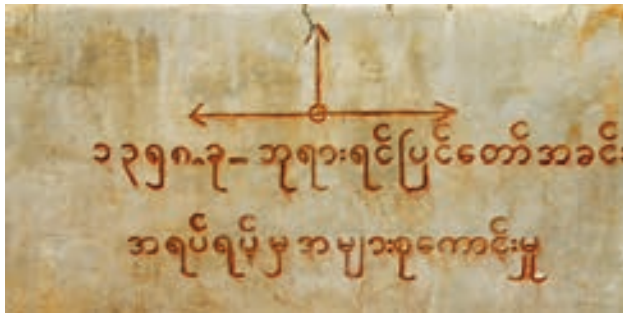 ၁၃၅၈-ခု- ဘုရားရင်ပြင်တော်အခင်း
အရပ်ရပ်မှအများစုကောင်းမှု